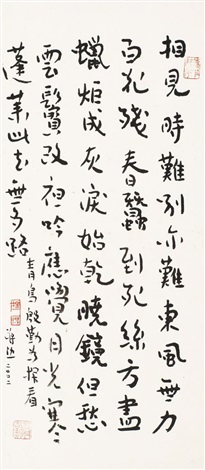 相見時難別亦難東風無力
百花殘春蠶到死絲方盡
蠟炬成灰淚始乾曉鏡但愁
雲鬢改夜吟應覺月光寒
蓬萊此去無多路
青鳥殷勤為探看
二〇〇二